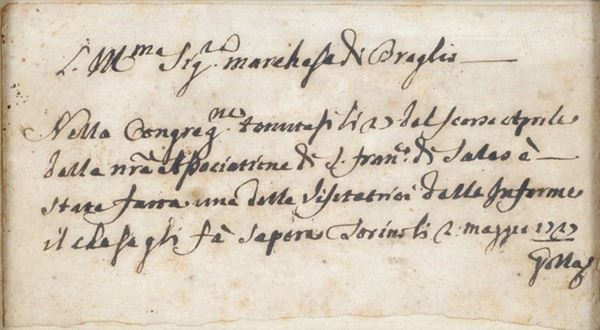 L. Ill.ma Sig.ra marchesa di Breglio
Nella Congreg.ne tenutasi li 27 del scorso Aprile
della nrã Associatione di S. Fran.co di Sales è
stata fatta una delle Visitatrici delle Inferme
il che se gli fà sapere Torino li 2 maggio 1727